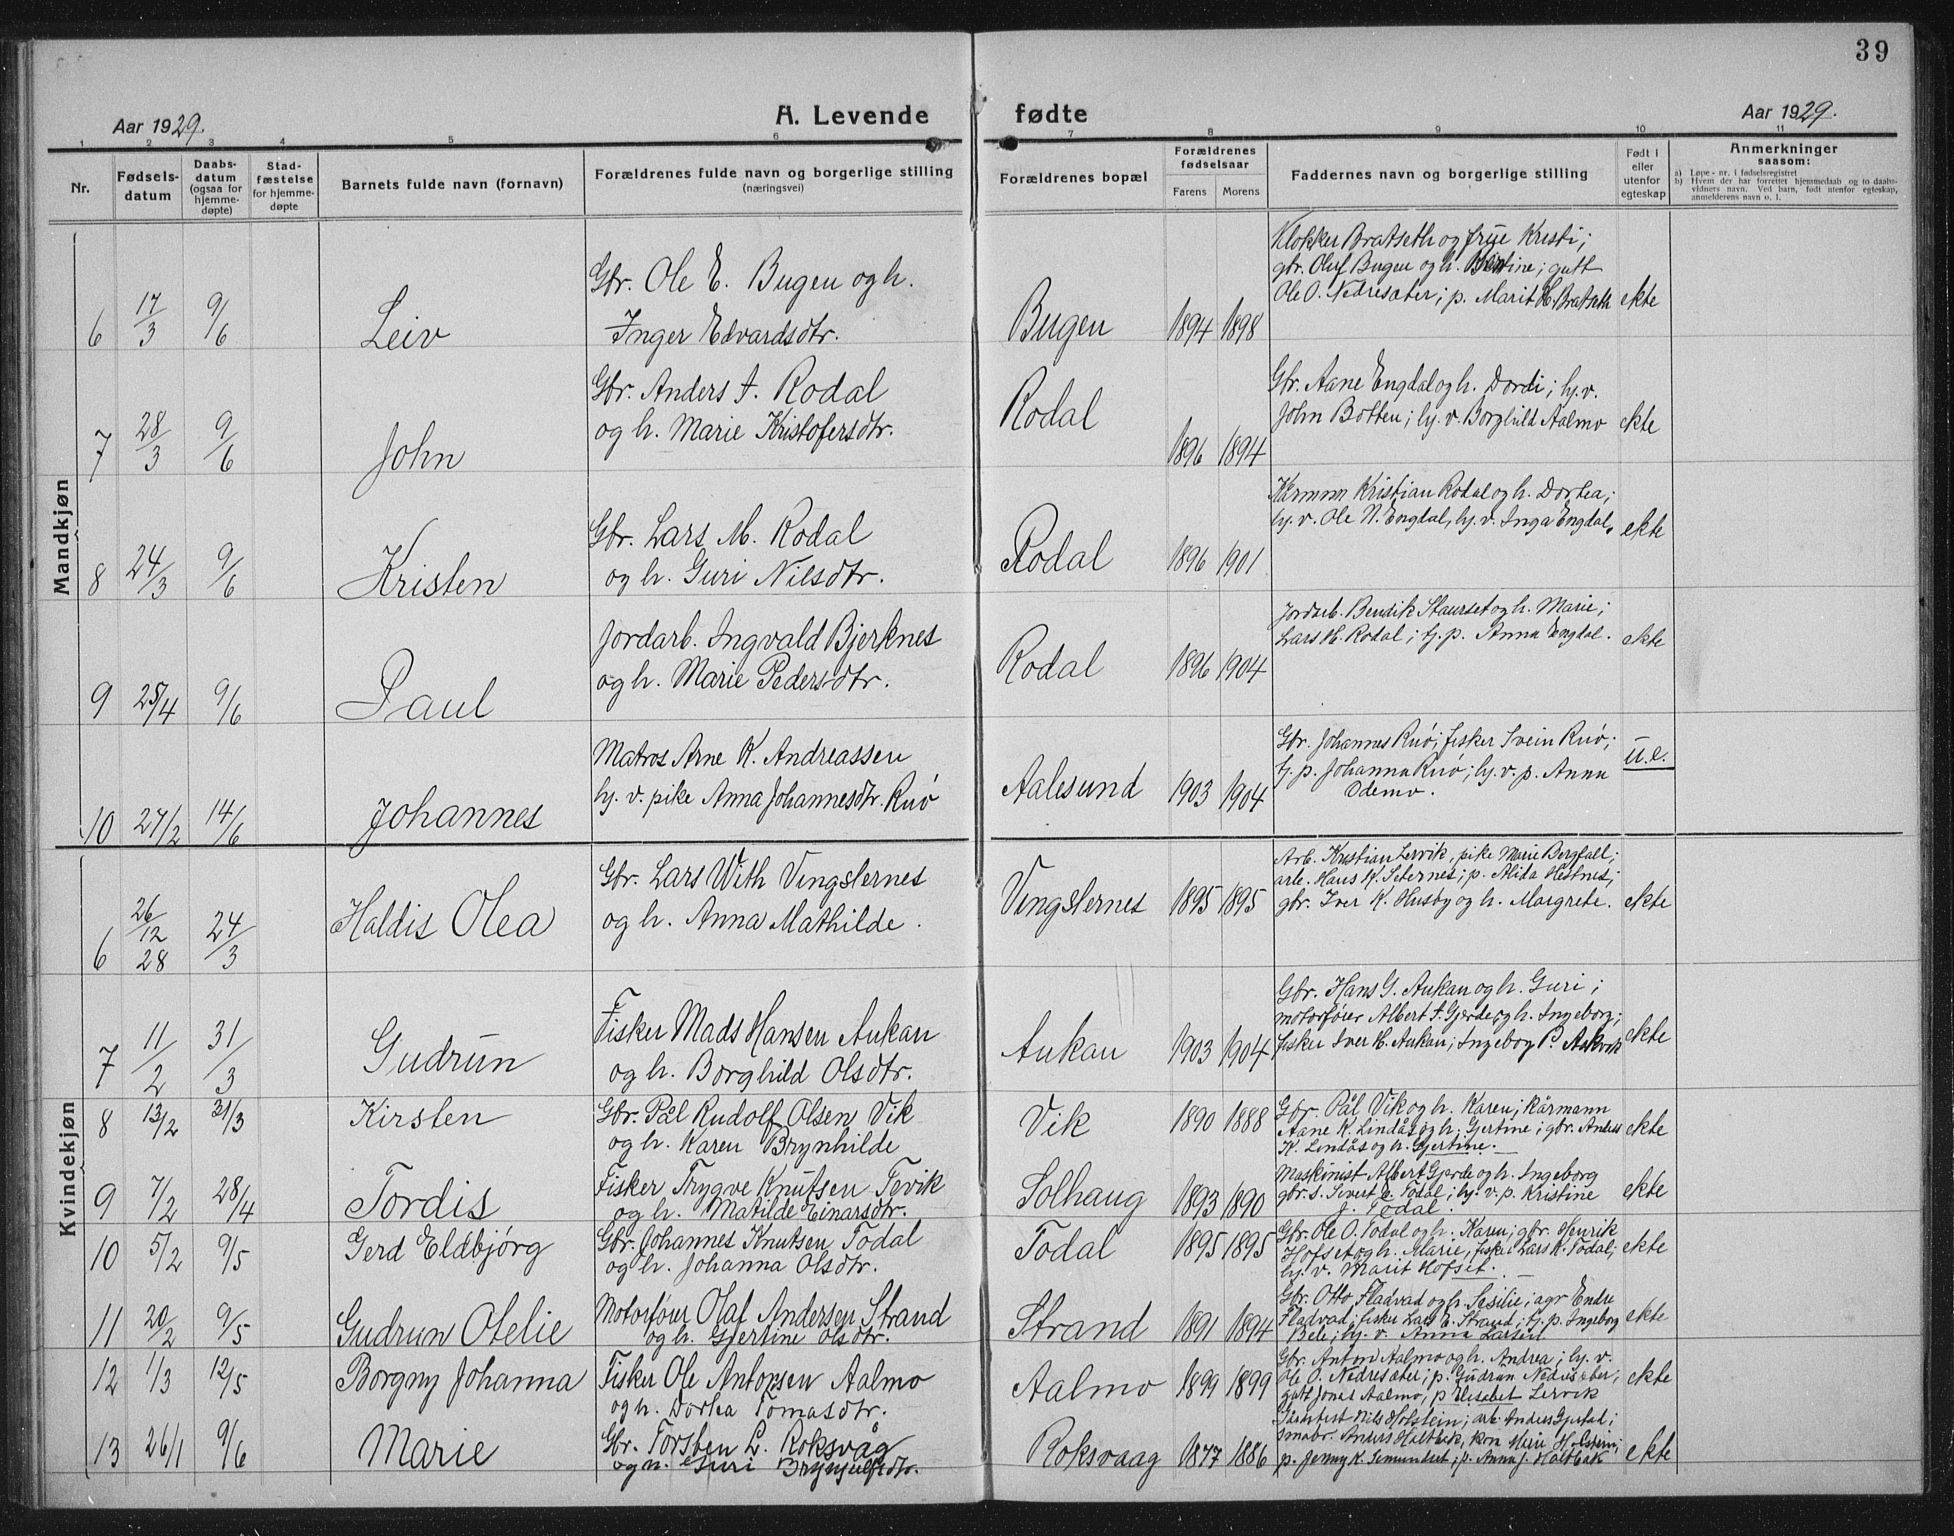 39
A. Levende fødte
Aar 1929. Aar 1929.
1 2 3 4 5 6 7 8 9 10 11
Nr.
Fødsels-
datum
Daabs-
datum
(ogsaa for
hjemme-
døpte)
Stad-
fæstelse
for hjemme-
døpte
Barnets fulde navn (fornavn)
Forældrenes fulde navn og borgerlige stilling
(næringsvei)
Forældrenes bopæl
Forældrenes
fødselsaar
Farens Morens
Faddernes navn og borgerlige stilling
Født i
eller
utenfor
egteskap
Anmerkninger
saasom:
a) Løpe-nr. i fødselsregistret
b) Hvem der har forrettet hjemmedaab og to daabs-
vidners navn. Ved barn, født utenfor egteskap,
anmelderens navn o. l.
Mandkjøn
6 17/3 9/6 Leiv
Gbr. Ole E. Bugen og h.
Inger Edvardsdtr.
Bugen 1894 1898
Klokker Bratseth og frue Kristi;
gbr. Oluf Bugen og h. gutt
Ole O. Nedresæter; p. Marit H. Bratseth
ekte
7 28/3 9/6 John
Gbr. Anders J. Rodal
og h. Marie Kristofersdtr.
Rodal 1896 1894
Gbr. Aane Engdal og h. Dordi; hj.v.
John Botten; hj. v. Borghild Aalmo
ekte
8 24/3 9/6 Kristen
Gbr. Lars M. Rodal
og h. Guri Nilsdtr.
Rodal 1896 1901
Kristian Rodal og h. Dortea;
hj. v. Ole N. Engdal, hj. v. Inga Engdal,
ekte
9 25/4 9/6 Paul
Jordarb. Ingvald Bjerknes
og h. Marie Pedersdtr.
Rodal 1896 1904
Jordarb. Bendik Staurset og h. Marie;
Lars M. Rodal; tj. p. Anna Engdal.
ekte
10 27/2 14/6 Johannes
Matros Arne K. Andreassen
hj. v. pike Anna Johannesdtr. Ruø
Aalesund 1903 1904
Gbr. Johannes Ruø; fisker Svein Ruø;
tj. p. Johanna Ruø; hj. v. p. Anna
Odemo.
u.e.
Kvindekjøn
6 26/12 28 24/3 Haldis Olea
Gbr. Lars With Vingsternes
og h. Anna Mathilde.
Vingsternes 1895 1895
Arb. Kristian Lervik, pike Marie Bergfall;
arb. Hans K. Seternes; p. Alida Hestnes;
gbr. Iver K. Husby og h. Margrete.
ekte
7 11/2 31/3 Gudrun
Fisker Mads Hansen Aukan
og h. Borghild Olsdtr.
Aukan 1903 1904
Gbr. Hans G. Aukan og h. Guri;
motorfører Albert S. Gjerde og h. Ingeborg;
fisker Iver H. Aukan; Ingeborg P. Aakvik
ekte
8 13/2 31/3 Kirsten
Gbr. Pål Rudolf Olsen Vik
og h. Karen Brynhilde
Vik 1890 1888
Gbr. Pål Vik og h. Karen; kårmann
Aane K. Lindås og h. Gjertine; gbr. Anders
K. Lindås og h. Gjertine.
ekte
9 7/2 28/4 Tordis
Fisker Trygve Knutsen Tevik
og h. Matilde Einarsdtr.
Solhaug 1893 1890
Maskinist Albert Gjerde og h. Ingeborg
gbr. s. Sivert E. Todal; hj. v. p. Kristine
J. Todal.
ekte
10 5/2 9/5 Gerd Eldbjørg
Gbr. Johannes Knutsen Todal
og h. Johanna Olsdtr.
Todal 1895 1895
Gbr. Ole O. Todal og h. Karen; gbr. Henrik
Hofset og h. Marie, fisker Lars K. Todal;
hj. v. Marit Hofset.
ekte
11 20/2 9/5 Gudrun Otelie
Motorfører Olaf Andersen Strand
og h. Gjertine Olsdtr.
Strand 1891 1894
Gbr. Otto Fladvad og h. Sesilie; agr Endre
Fladvad; fisker Lars E. Strand; tj. p. Ingeborg
Bele; hj. v. Anna Larsen
ekte
12 1/3 12/5 Borgny Johanna
Fisker Ole Antonsen Aalmo
og h. Dortea Tomasdtr.
Aalmo 1899 1899
Gbr. Anton Aalmo og h. Andrea; hj. v.
Ole O. Nedresæter; p. Gudrun Nedresæter;
gutt Jonas Aalmo, p Elisabet Lervik
ekte
13 26/1 9/6 Marie
Gbr. Torsten L. Roksvåg
og h. Guri Brynjulfsdtr.
Roksvaag 1877 1886
Nils Holstein; arb. Anders
smabr. Anders Haltbak, kon Marie Holstein;
p. Jenny K. Semundset, p. Anna J. Haltbak
ekte